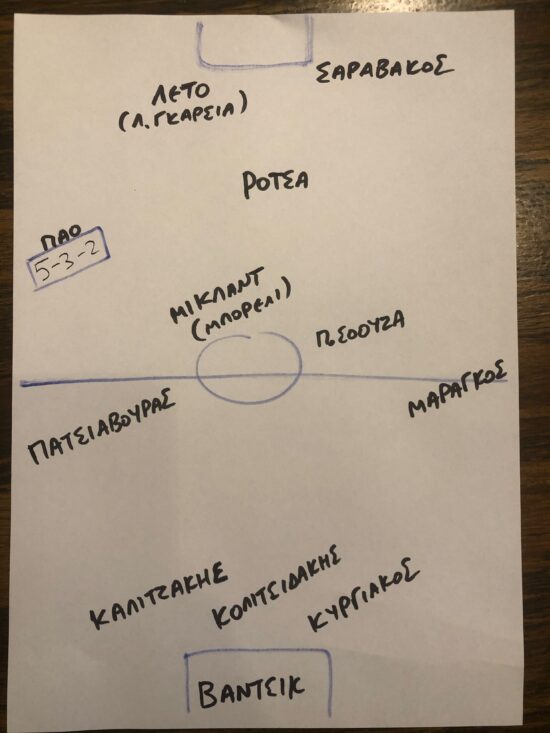 ΣΑΡΑΒΑΚΟΣ
ΛΕΤΟ
(Λ.ΓΚΑΡΣΙΑ)
ΡΟΤΣΑ
ΠΑΟ
5-3-2
ΜΙΚΛΑΝΤ
(ΜΠΟΡΕΛΙ)
Π.ΣΟΟΥΖΑ
ΜΑΡΑΓΚΟΣ
ΠΑΤΣΙΑΒΟΥΡΑΣ
ΚΑΛΙΤΖΑΚΗΣ
ΚΟΛΙΤΣΙΔΑΚΗΣ
ΚΥΡΓΙΑΚΟΣ
ΒΑΝΤΣΙΚ